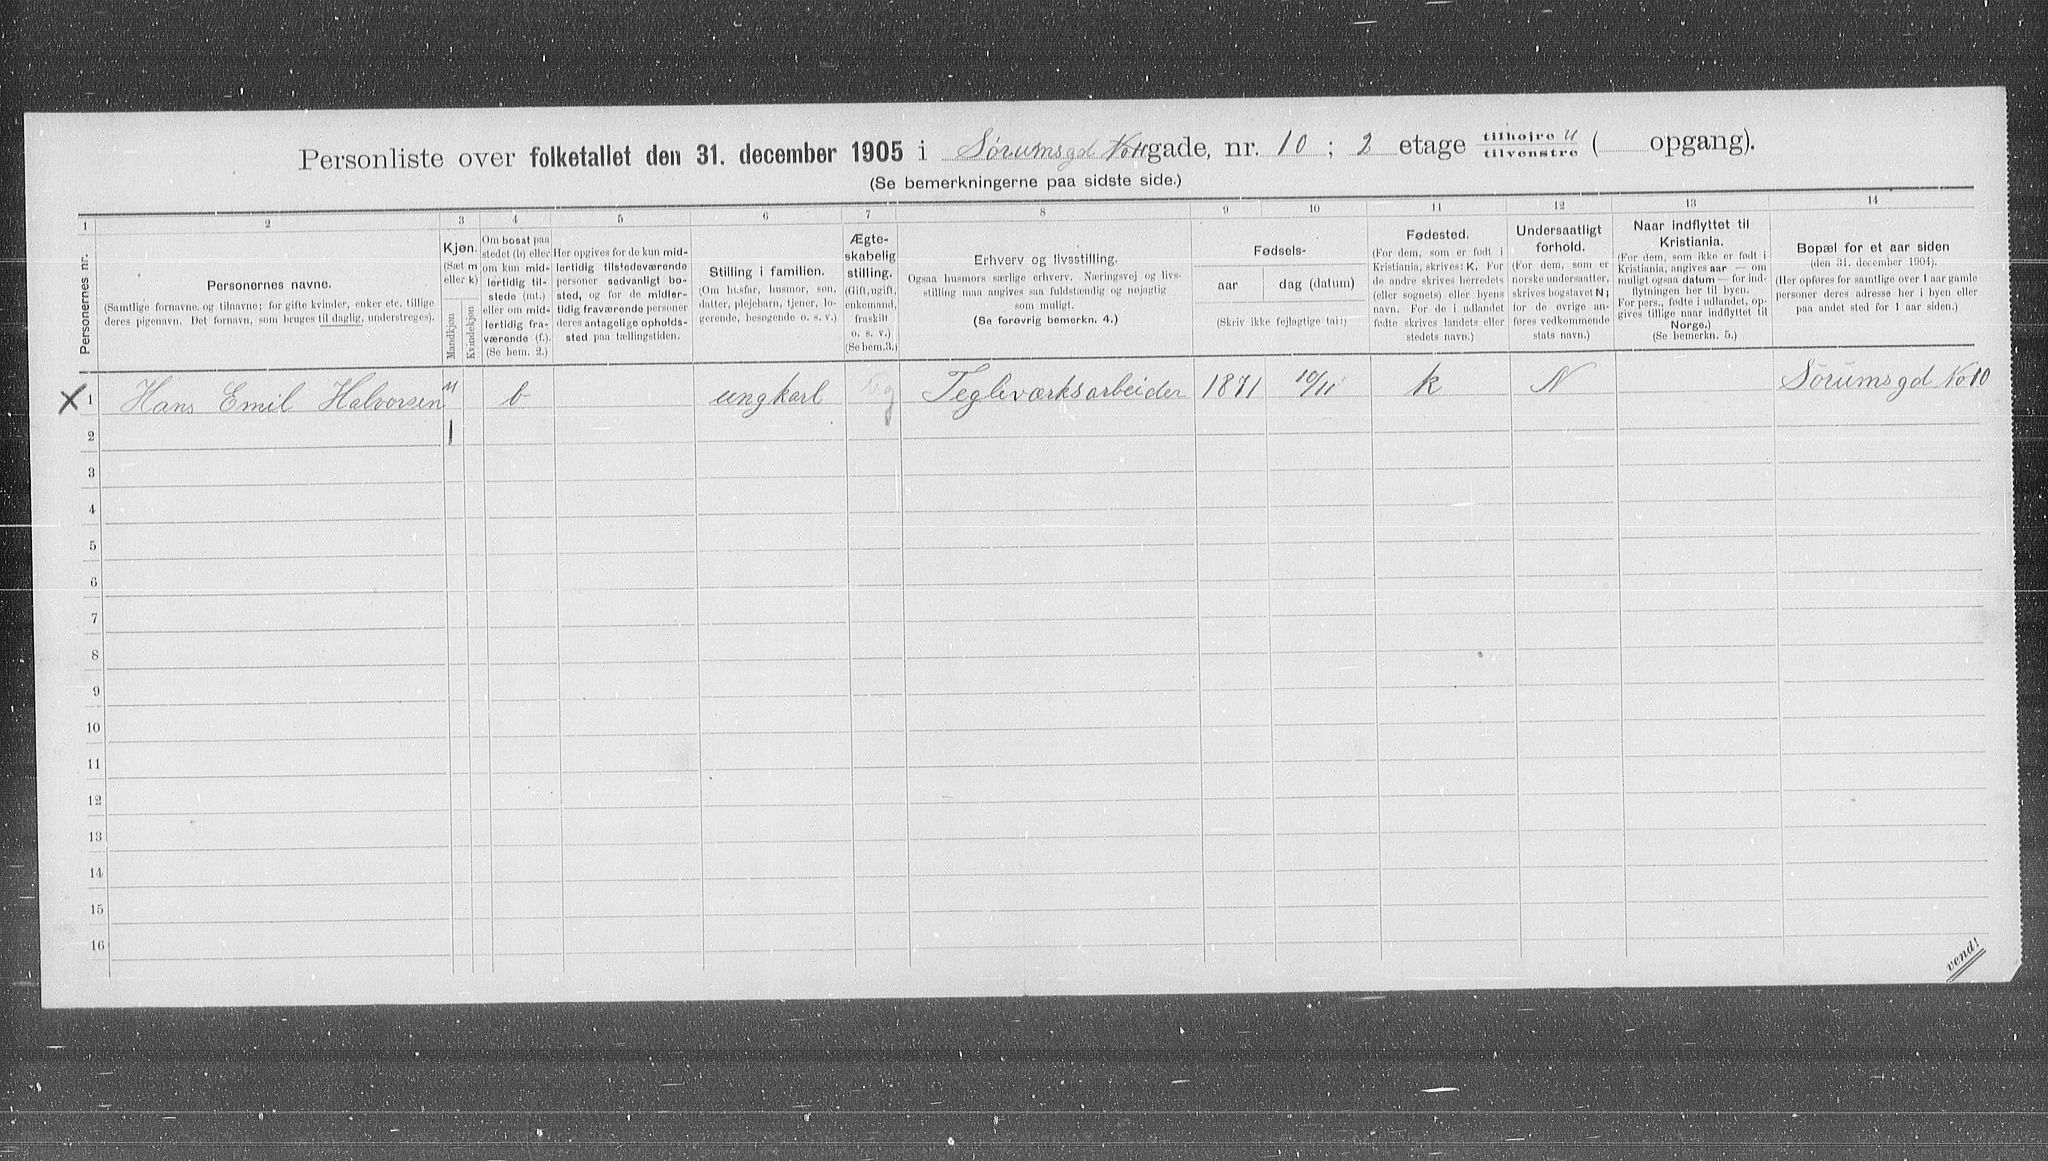 Personliste over folketallet den 31. december 1905 i Sørumsgd gade, nr. 10 ; 2 etage tilhøjre tilvenstre ( opgang).
(Se bemerkningerne paa sidste side.)
1 2 3 4 5 6 7 8 9 10 11 12 13 14
Personernes nr.
Personernes navne.
(Samtlige fornavne og tilnavne; for gifte kvinder, enker etc. tillige
deres pigenavn. Det fornavn, som bruges til daglig, understreges).
Kjøn.
(Sæt m
eller k)
Mandkjøn
Kvindekjøn
Om bosat paa
stedet (b) eller
om kun mid-
lertidig til-
stede (mt.)
eller om mid-
lertidig fra-
værende (f.).
(Se bem. 2.)
Her opgives for de kun mid-
lertidig tilstedeværende
personer sedvanligt bo-
sted, og for de midler-
tidig fraværende personer
deres antagelige opholds-
sted paa tællingstiden.
Stilling i familien.
(Om husfar, husmor, søn,
datter, plejebarn, tjener, lo-
gerende, besøgende o. s. v.)
Ægte-
skabelig
stilling.
(Gift, ugift,
enkemand,
fraskilt
o. s. v.)
(Se bem. 3.)
Erhverv og livsstilling.
Ogsaa husmors særlige erhverv. Næringsvej og livs-
stilling maa angives saa fuldstændig og nøjagtig
som muligt.
(Se forøvrig bemerkn. 4.)
Fødsels-
aar
dag (datum)
(Skriv ikke fejlagtige tal!)
Fødested.
(For dem, som er født i
Kristiania, skrives: K. For
de andre skrives herredets
(eller sognets) eller byens
navn. For de i udlandet
fødte skrives landets eller
stedets navn.)
Undersaatligt
forhold.
(For dem, som er
norske undersaatter,
skrives bogstavet N;
for de øvrige an-
føres vedkommende
stats navn.)
Naar indflyttet til
Kristiania.
(For dem, som ikke er født i
Kristiania, angives aar — om
muligt ogsaa datum — for ind-
flytningen her til byen.
For pers., fødte i udlandet, op-
gives tillige naar indflyttet til
Norge.)
(Se bemerkn. 5.)
Bopæl for et aar siden
(den 31. december 1904).
(Her opføres for samtlige over 1 aar gamle
personer deres adresse her i byen eller
paa andet sted for 1 aar siden.)
X 1 Hans Emil Halvorsen m b ungkarl g Tegleværksarbeider 1871 10/11 K N Sørumsgd No 10
2 1
3
4
5
6
7
8
9
10
11
12
13
14
15
16
vend!